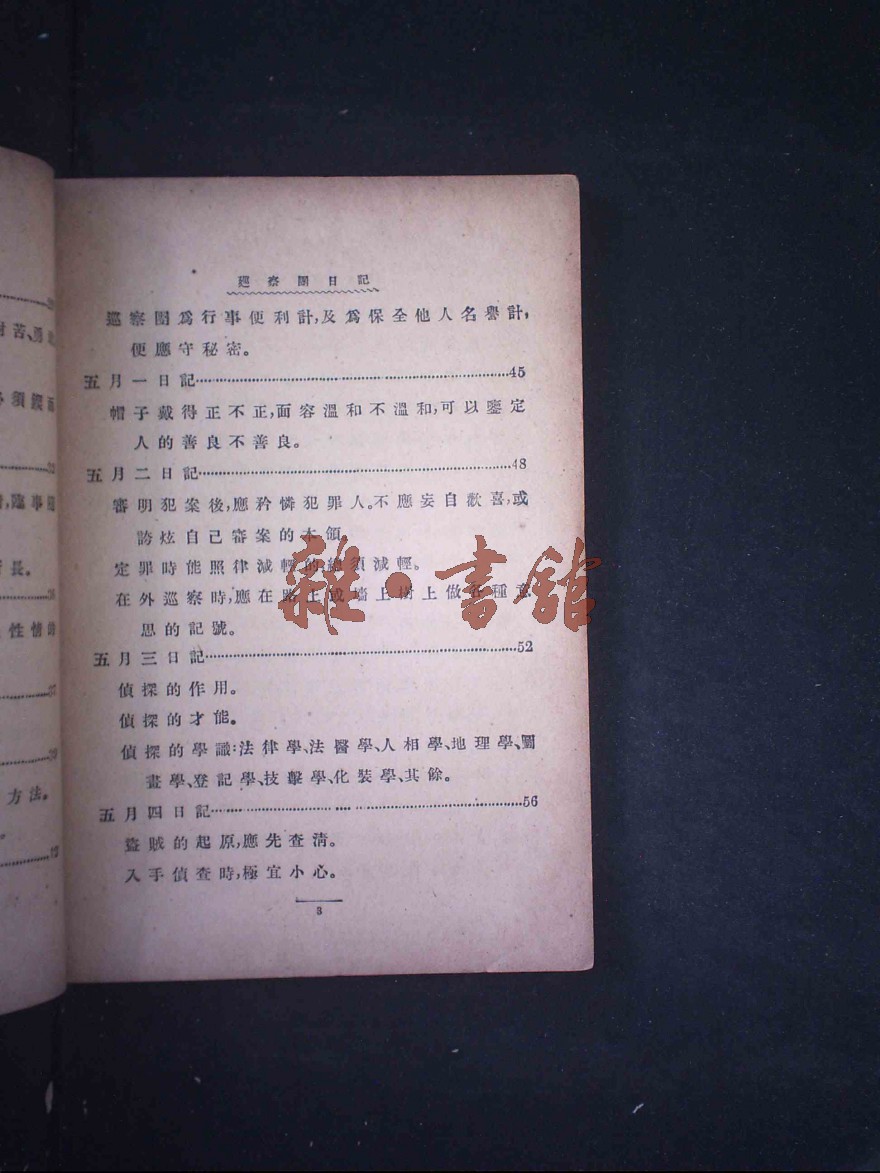 巡察團日記
巡察團爲行事便利計,及爲保全他人名譽計,
便應守秘密。
五月一日記……45
帽子戴得正不正,面容溫和不溫和,可以鑒定
人的善良不善良。
五月二日記……48
審明犯案後,應矜憐犯罪人。不應妄自歡喜,或
誇炫自己審案的本領
定罪時能照律減輕的總須減輕。
在外巡察時,應在路上或墻上樹上做各種意
思的記號。
五月三日記……52
偵探的作用。
偵探的才能。
偵探的學識:法律學、法醫學、人相學、地理學、圖
畫學、登記學、技擊學、化裝學、其餘。
五月四日記……56
盜賊的起原,應先查清。
入手偵查時,極宜小心。
3
雜·書舘
苦、勇
須
臨事
長。
性情的
方法。